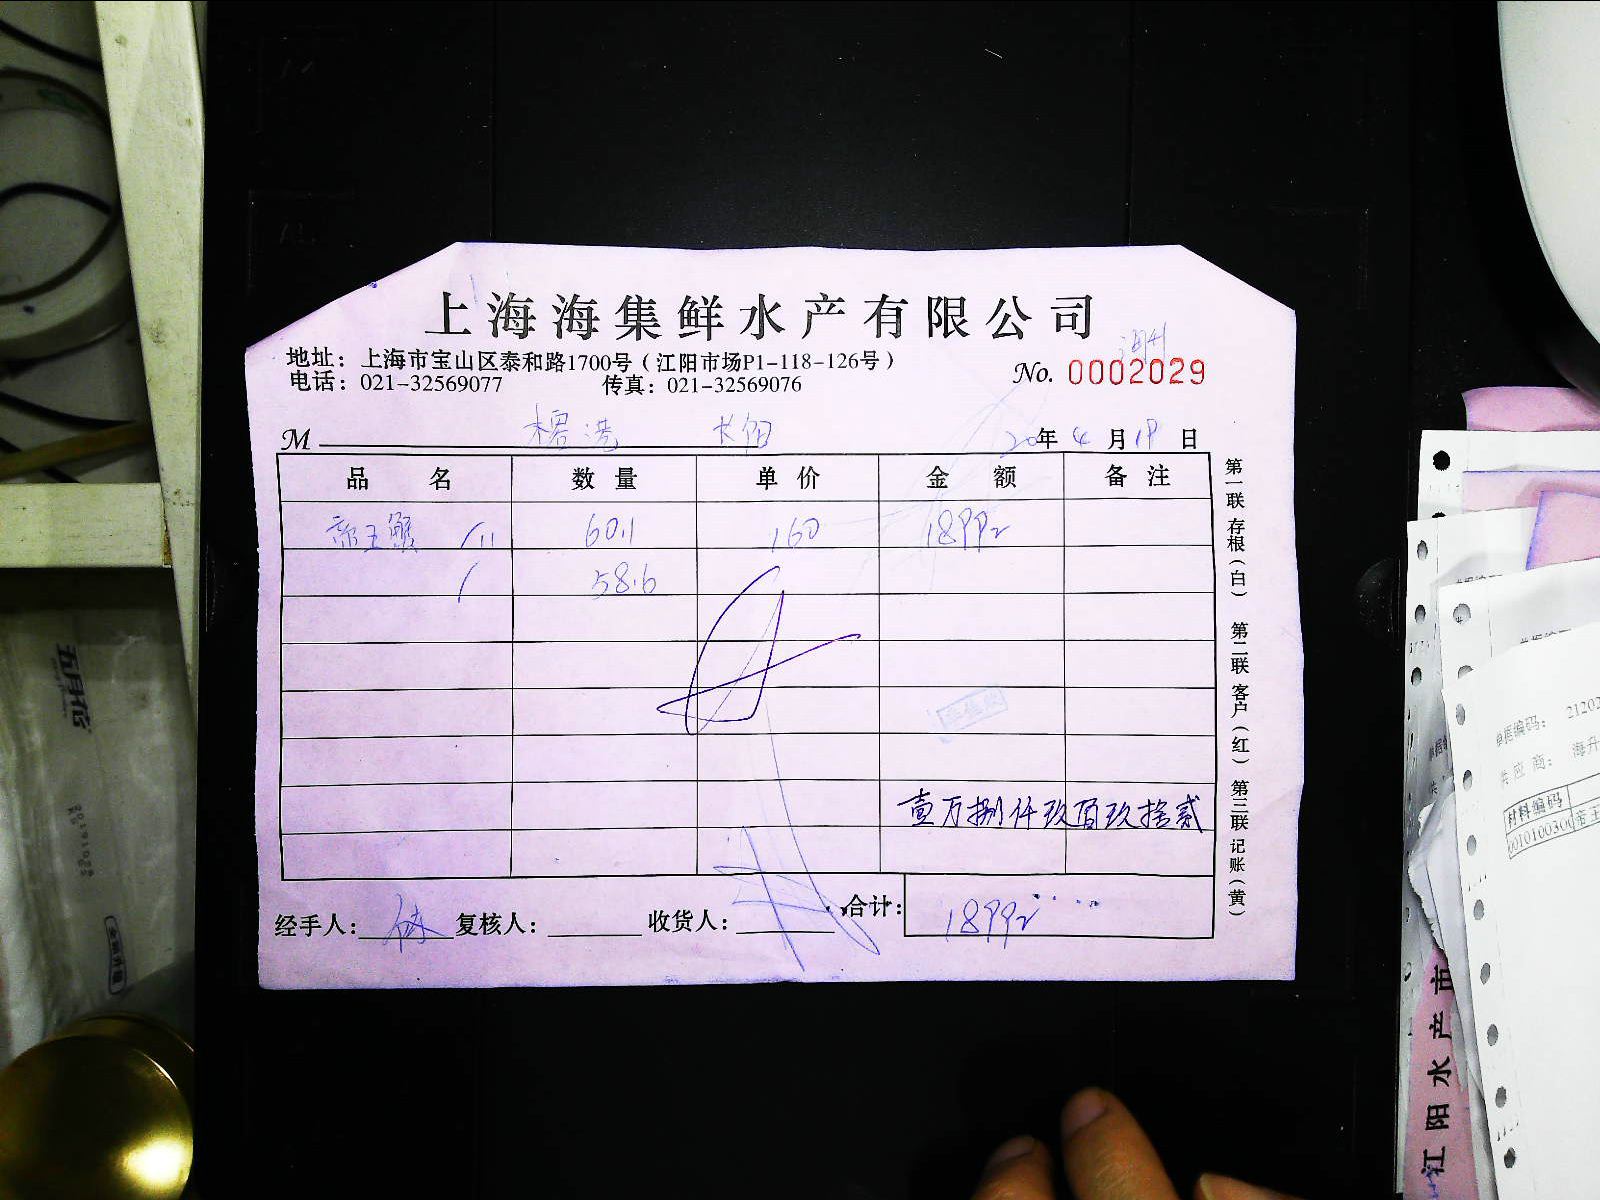 上海海集鲜水产有限公司
地址：上海市宝山区泰和路1700号（江阳市场P1-118-126号）
电话：021-32569077 传真：021-32569076
No. 0002029
M 榕港 长阳 20年4月19日
品名 数量 单价 金额 备注
帝王蟹 60.1 160 18992
58.6
壹万捌仟玖佰玖拾贰
经手人： 复核人： 收货人： 合计：18992
第一联存根（白） 第二联客户（红） 第三联记账（黄）
五月花
单据编码：21202
供应商：海升
材料编码
江阳水产市